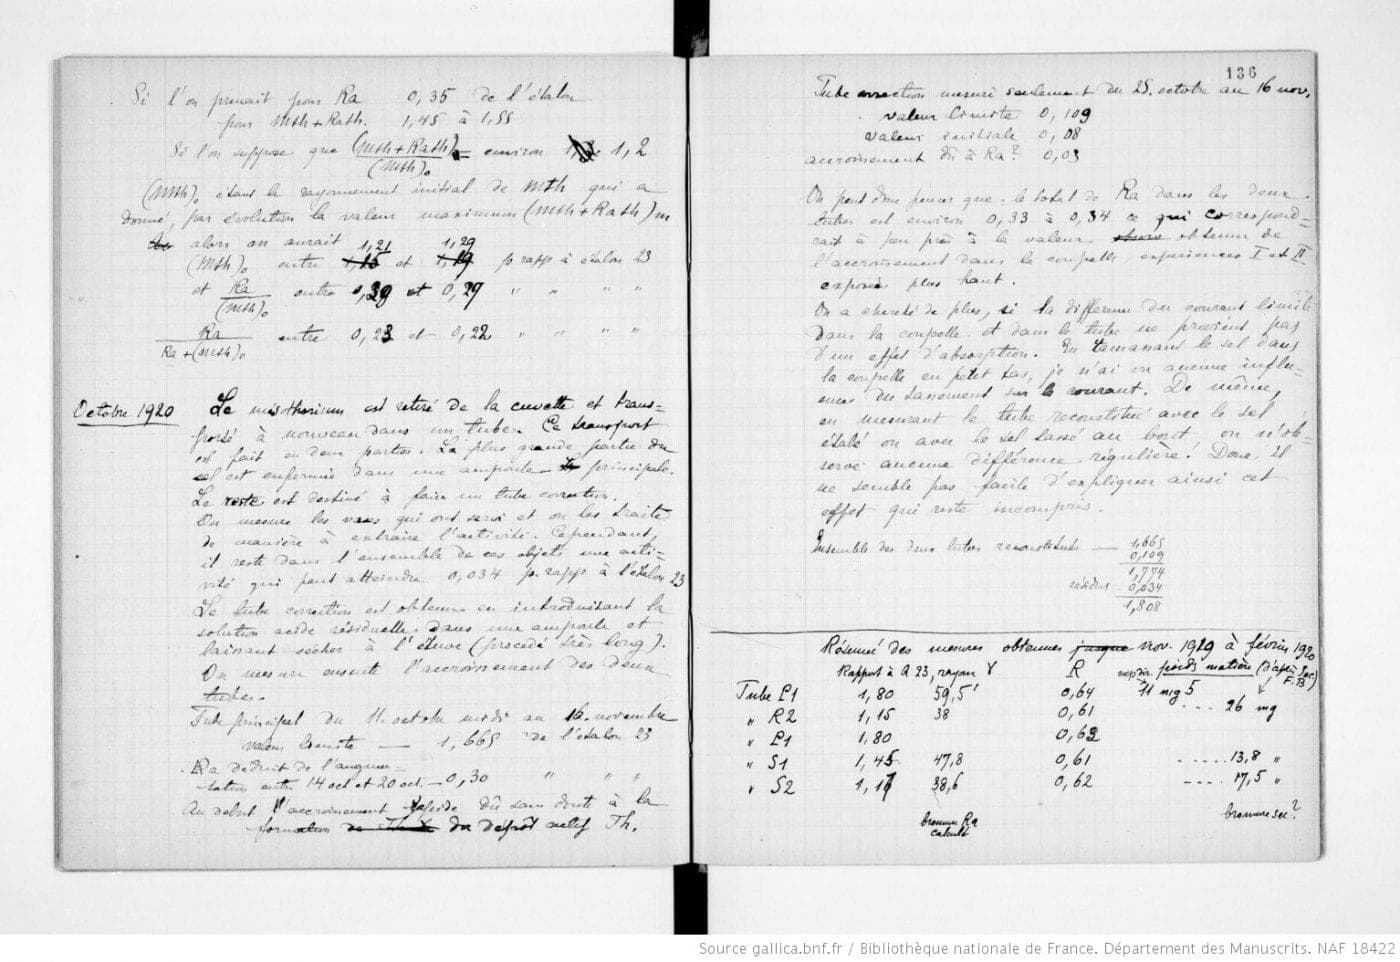 Si l'on prenait pour Ra 0,35 de l'étalon
pour Mth + Rath. 1,45 à 1,55
Si l'on suppose que (Mth+Rath)m / (Mth)o = environ 1,2
(Mth)o étant le rayonnement initial de Mth qui a
donné, par évolution la valeur maximum (Mth+Rath)m
alors on aurait 1,21 1,29
(Mth)o entre 1,15 et 1,19 p rapp à étalon 23
et Ra / (Mth)o entre 0,30 et 0,29 " " " "
Ra / Ra + (Mth)o entre 0,23 et 0,22 " " " "
Octobre 1920 Le mésothorium est retiré de la cuvette et trans=
porté à nouveau dans un tube. Ce transport
est fait en deux parties. La plus grande partie du
sel est enfermée dans une ampoule principale.
Le reste est destiné à faire un tube correction.
On mesure les vases qui ont servi et on les traite
de manière à extraire l'activité. Cependant,
il reste dans l'ensemble de ces objets une acti-
vité qui peut atteindre 0,034 p. rapp à l'étalon 23
Le tube correction est obtenu en introduisant la
solution acide résiduelle dans une ampoule et
laissant sécher à l'étuve (procédé très long).
On mesure ensuite l'accroissement des deux
tubes.
Tube principal du 11 octobre midi au 16 novembre
valeur limite — 1,665 de l'étalon 23
Ra déduit de l'augmen-
tation entre 14 oct et 20 oct — 0,30 " " "
Au début l'accroissement rapide dû sans doute à la
formation de Th X du dépôt actif Th.
136
Tube correction mesuré seulement du 25 octobre au 16 nov.
valeur limite 0,109
valeur initiale 0,08
accroissement dû à Ra? 0,03
On peut donc penser que le total de Ra dans les deux
tubes est environ 0,33 à 0,34 ce qui correspond=
rait à peu près à la valeur obtenue de
l'accroissement dans la coupelle, expériences I et II
exposées plus haut.
On a cherché de plus, si la différence du courant limite
dans la coupelle et dans le tube ne provient pas
d'un effet d'absorption. En ramassant le sel dans
la coupelle en petit tas, je n'ai vu aucune influ-
ence du tassement sur le courant. De même,
en mesurant le tube reconstitué avec le sel
étalé ou avec le sel tassé au bout, on n'ob-
serve aucune différence régulière! Donc, il
ne semble pas facile d'expliquer ainsi cet
effet qui reste incompris.
Ensemble des deux tubes reconstitués — 1,665
0,109
1,774
résidus 0,034
1,808
Résumé des mesures obtenues jusque nov. 1919 à février 1920
Rapport à A 23, rayon γ R poids matière (d'après Soc. F.B)
Tube P1 1,80 59,5 0,64 71 mg 5
" R2 1,15 38 0,61 . . . 26 mg
" P1 1,80 0,62
" S1 1,45 47,8 0,61 ..... 13,8 "
" S2 1,17 38,6 0,62 .... 17,5 "
bromure Ra bromure sec?
calculé
Source gallica.bnf.fr / Bibliothèque nationale de France. Département des Manuscrits. NAF 18422